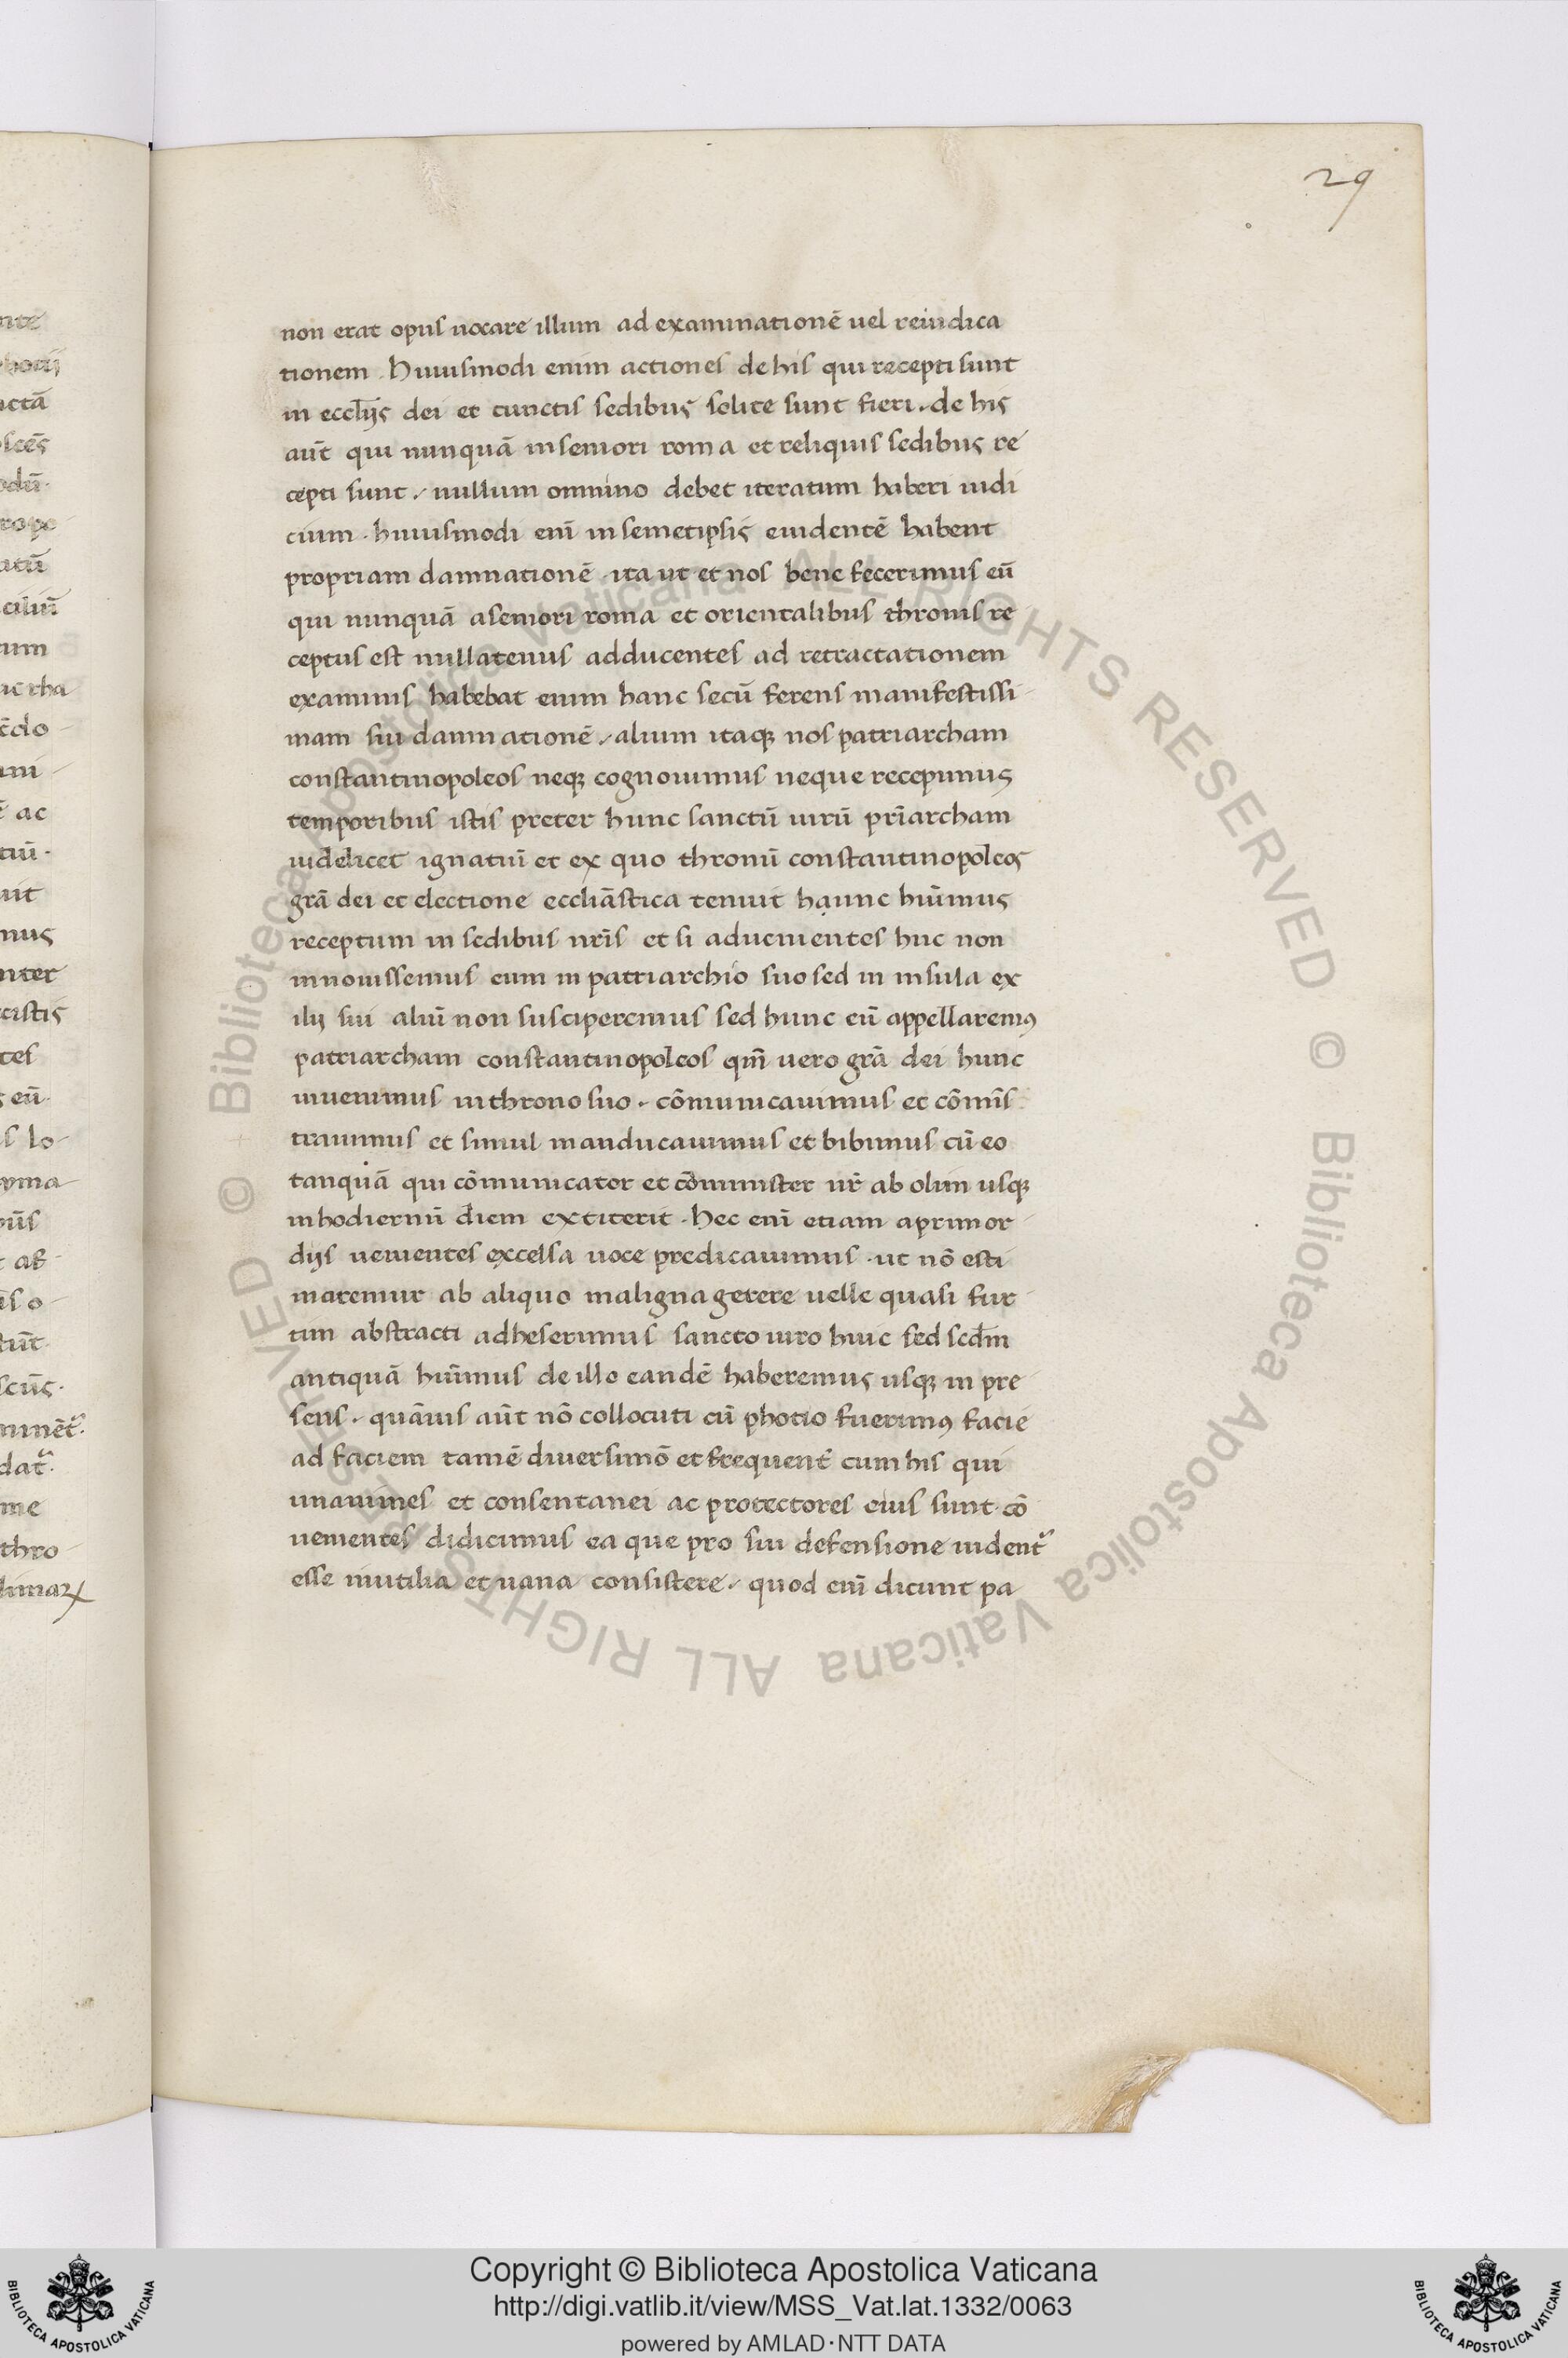 29
non erat opus uocare illum ad examinationē uel reiudica
tionem. Huiusmodi enim actiones de his qui recepti sunt
in eccl̄ijs dei et cunctis sedibus solite sunt fieri. de his
aūt qui nunquā in seniori roma et reliquis sedibus re
cepti sunt. nullum omnino debet iteratum haberi iudi
cium. huiusmodi enī in semetipsis euidentē habent
propriam damnationē. ita ut et nos bene fecerimus eū
qui nunquā a seniori roma et orientalibus thronis re
ceptus est nullatenus adducentes ad retractationem
examinis habebat enim hanc secū ferens manifestissi
mam sui damnationē. alium itaqꝫ nos patriarcham
constantinopoleos neqꝫ cognouimus neque recepimus
temporibus istis preter hunc sanctū uirū pr̄iarcham
uidelicet ignatiū et ex quo thronū constantinopoleos
grā dei et electione eccliāstica tenuit hạunc hūimus
receptum in sedibus nr̄is et si aduenientes huc non
innouissemus eum in patriarchio suo sed in insula ex
ilij sui aliū non susciperemus sed hunc eū appellaremꝰ
patriarcham constantinopoleos qm̄ uero grā dei hunc
inuenimus in throno suo. cōmunicauimus et cōmīs
trauimus et simul manducauimus et bibimus cū eo
tanquā qui cōmunicator et cōminister nr̄ ab olim usqꝫ
in hodiernū diem extiterit. Hec enī etiam a primor
dijs uenientes excelsa uoce predicauimus. ut nō esti
maremur ab aliquo maligna gerere uelle quasi fur
tim abstracti adheserimus sancto uiro huic sed scd̄m
antiquā hūimus de illo eandē haberemus usqꝫ in pre
sens. quāuis aūt nō collocuti cū photio fuerimꝰ facie
ad faciem tamē diuersimō et frequent̄ cum his qui
unanimes et consentanei ac protectores eius sunt cō
uenientes didicimus ea que pro sui defensione uident᷑
esse inutilia et uana consistere. quod enī dicunt pa
Copyright © Biblioteca Apostolica Vaticana
http://digi.vatlib.it/view/MSS_Vat.lat.1332/0063
powered by AMLAD·NTT DATA
BIBLIOTECA APOSTOLICA VATICANA
BIBLIOTECA APOSTOLICA VATICANA
© Biblioteca Apostolica Vaticana ALL RIGHTS RESERVED © Biblioteca Apostolica Vaticana ALL RIGHTS RESERVED